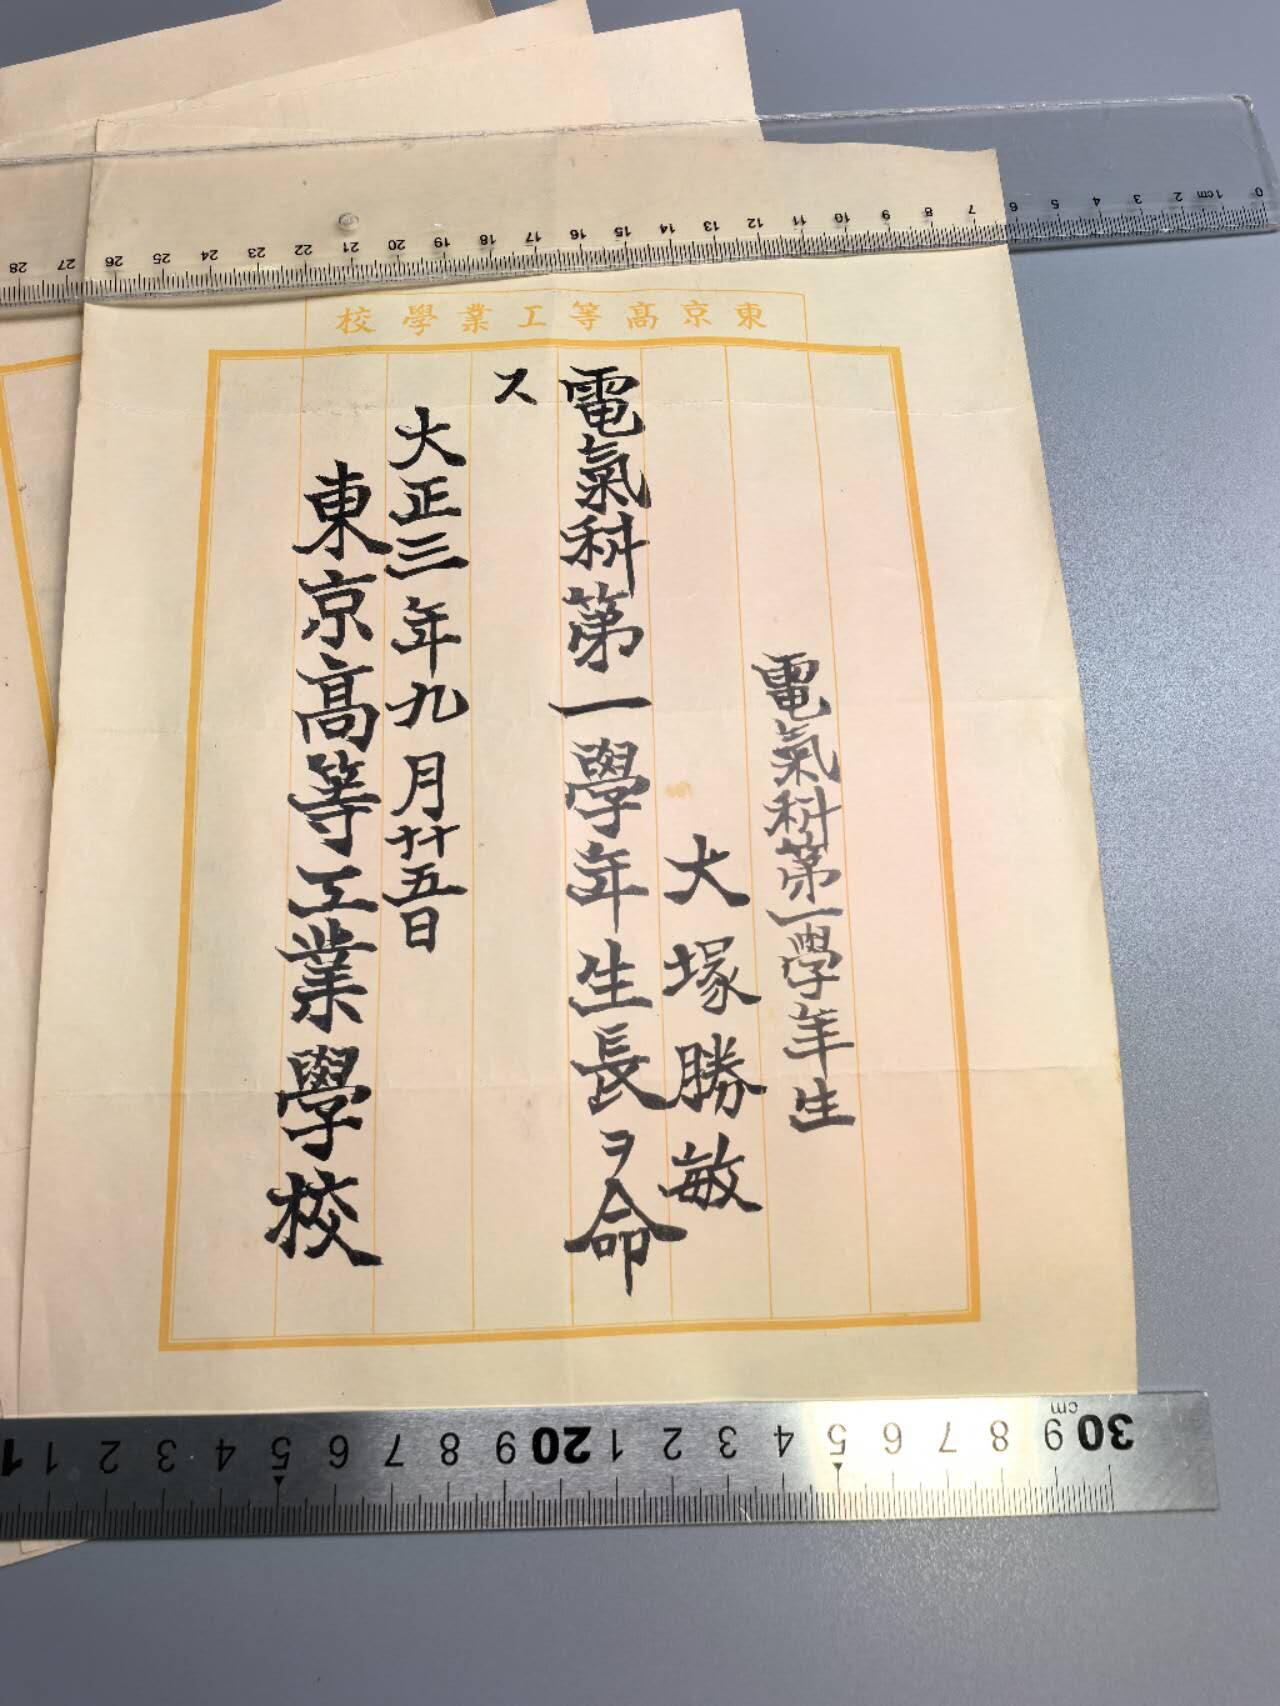 東京高等工業學校
電氣科第一學年生
大塚勝敏
電氣科第一學年生長ヲ命
ス
大正三年九月廿五日
東京高等工業學校
0 1cm 2 3 4 5 6 7 8 9 10 11 12 13 14 15 16 17 18 19 20 21 22 23 24 25 26 27 28
1 1 2 3 4 5 6 7 8 9 20 1 2 3 4 5 6 7 8 9 30 cm